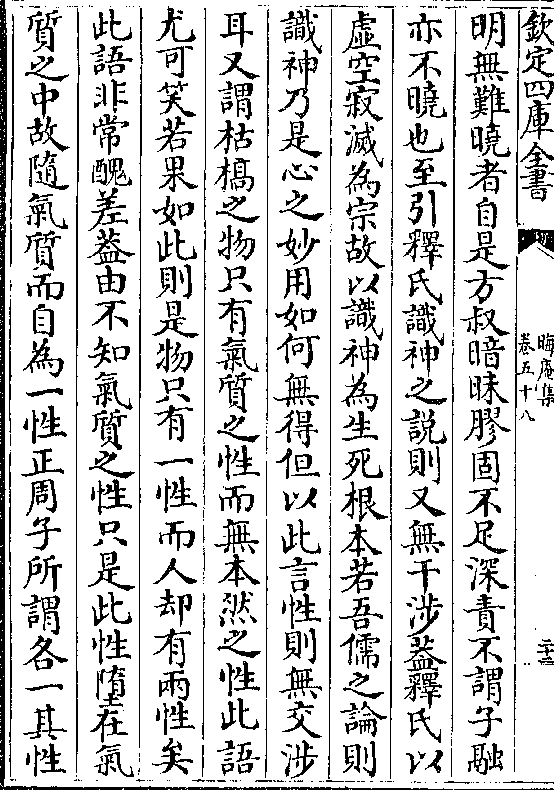 欽定四庫全書
晦庵集
卷五十八
二十三
明無難曉者自是方叔暗昧膠固不足深責不謂子融
亦不曉也至引釋氏識神之說則又無干涉葢釋氏以
虛空寂滅為宗故以識神為生死根本若吾儒之論則
識神乃是心之妙用如何無得但以此言性則無交涉
耳又謂枯槁之物只有氣質之性而無本然之性此語
尤可笑若果如此則是物只有一性而人却有兩性矣
此語非常醜差葢由不知氣質之性只是此性墮在氣
質之中故隨氣質而自為一性正周子所謂各一其性